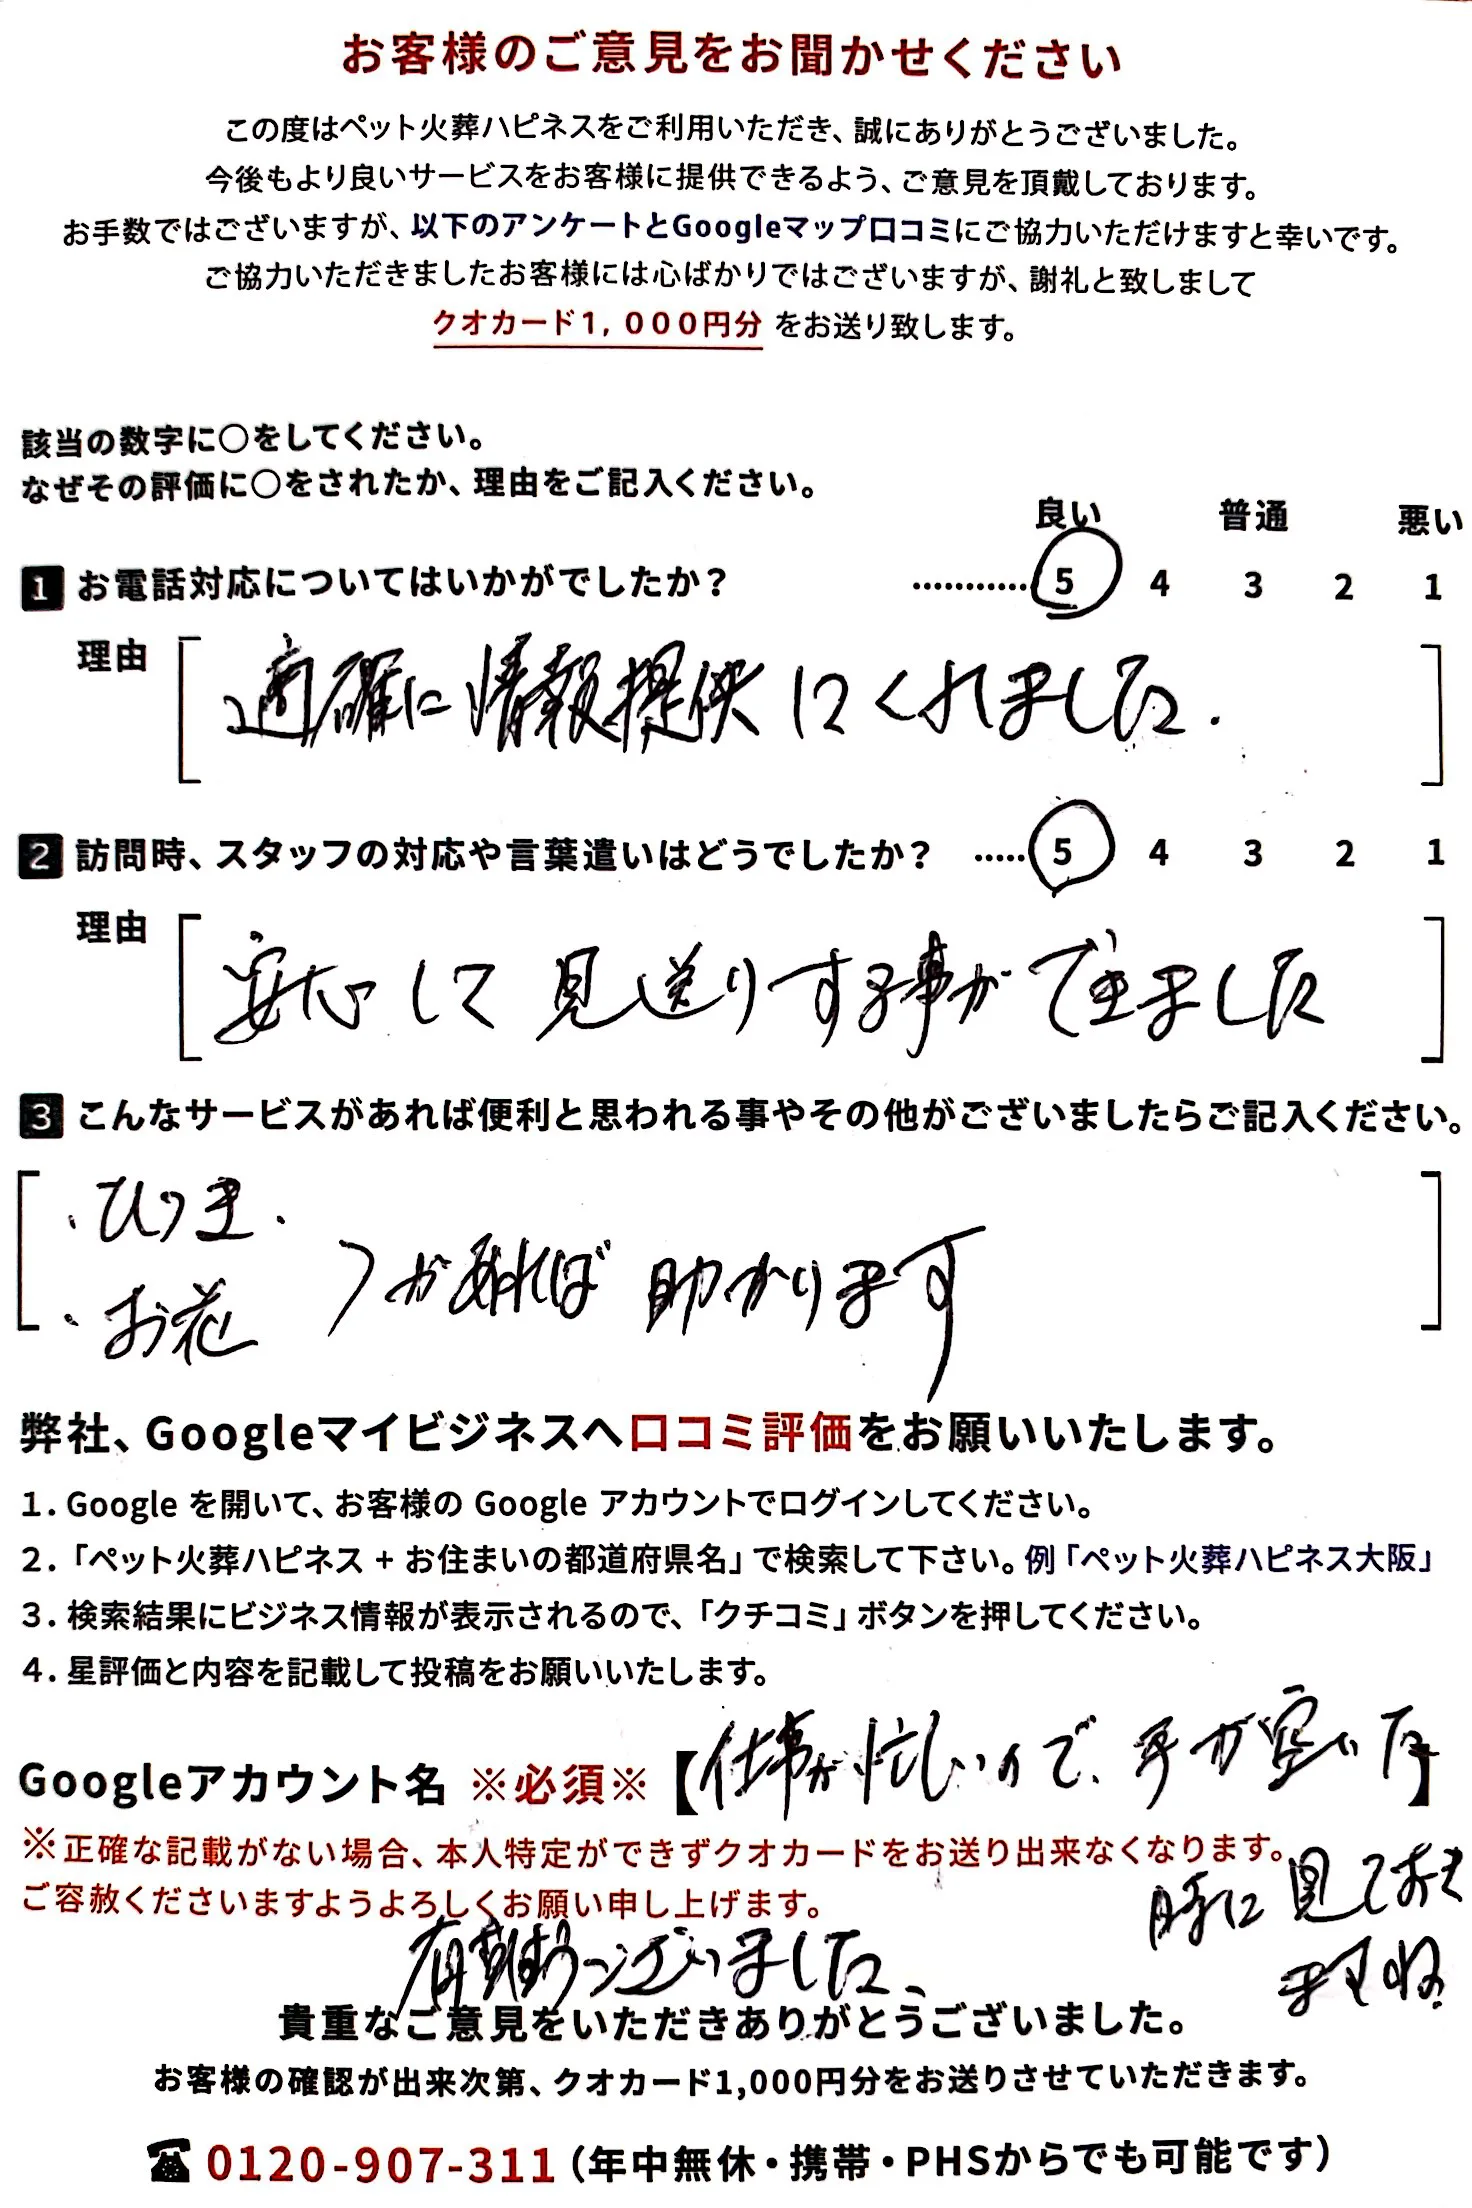 お客様のご意見をお聞かせください
この度はペット火葬ハピネスをご利用いただき、誠にありがとうございました。
今後もより良いサービスをお客様に提供できるよう、ご意見を頂戴しております。
お手数ではございますが、以下のアンケートとGoogleマップ口コミにご協力いただけますと幸いです。
ご協力いただきましたお客様には心ばかりではございますが、謝礼と致しまして
クオカード1,000円分 をお送り致します。
該当の数字に〇をしてください。
なぜその評価に〇をされたか、理由をご記入ください。
良い 普通 悪い
1 お電話対応についてはいかがでしたか? ............ 5 4 3 2 1
理由 [ 適確に情報提供してくれました. ]
2 訪問時、スタッフの対応や言葉遣いはどうでしたか? ..... 5 4 3 2 1
理由 [ 安心して見送りする事ができました ]
3 こんなサービスがあれば便利と思われる事やその他がございましたらご記入ください。
・ひつぎ・
・お花
があれば 助かります
弊社、Googleマイビジネスへ口コミ評価をお願いいたします。
1. Google を開いて、お客様の Google アカウントでログインしてください。
2.「ペット火葬ハピネス + お住まいの都道府県名」で検索して下さい。例「ペット火葬ハピネス大阪」
3. 検索結果にビジネス情報が表示されるので、「クチコミ」ボタンを押してください。
4. 星評価と内容を記載して投稿をお願いいたします。
Googleアカウント名 ※必須※【仕事が忙しいので、手が空いた】
※正確な記載がない場合、本人特定ができずクオカードをお送り出来なくなります。
時に見ておき
ご容赦くださいますようよろしくお願い申し上げます。
ますね。
有難うございました、
貴重なご意見をいただきありがとうございました。
お客様の確認が出来次第、クオカード1,000円分をお送りさせていただきます。
☎ 0120-907-311(年中無休・携帯・PHSからでも可能です)